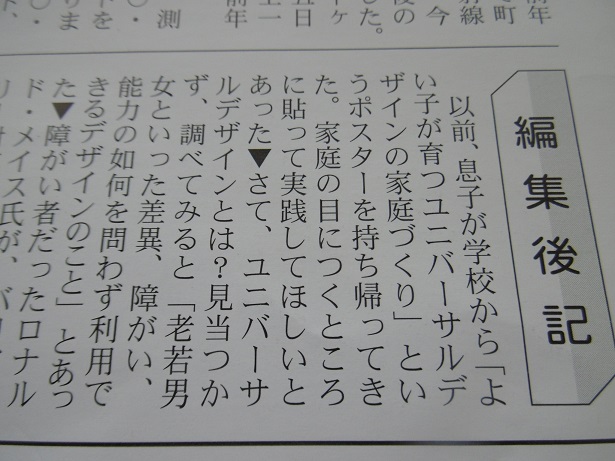 前年
町
線
今
後の
した。
五日
上一
前年
測
編集後記
以前、息子が学校から「よ
い子が育つユニバーサルデ
ザインの家庭づくり」とい
うポスターを持ち帰ってき
た。家庭の目につくところ
に貼って実践してほしいと
あった▼さて、ユニバーサ
ルデザインとは?見当つか
ず、調べてみると「老若男
女といった差異、障がい、
能力の如何を問わず利用で
きるデザインのこと」とあっ
た▼障がい者だったロナル
ド・メイス氏が、バリ